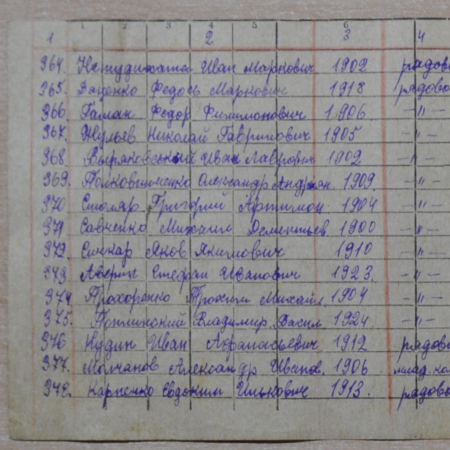 1 2 3 4 5 6
1 2 3 4
964. Нетудихатка Иван Маркович 1902 рядово
965. Даценко Федось Маркович 1918 рядово
966. Гаман Федор Филимонович 1906 -"-
967. Жульев Николай Гаврилович 1905 -"-
968 Выряковський Иван Лаврович 1902 -"-
969. Полковниченко Александр Андриян. 1909 -"-
970 Столяр Григорий Артимон 1904 -"-
971 Савченко Михаил Дементьев. 1900 -"-
972. Слюсар Яков Якимович 1910 -"-
973. Аверин Стефан Иванович 1923. -"-
974 Прохоренко Трохим Михайл 1904 -"-
975. Потлинский Владимир Васил 1924 -"-
976 Кудин Иван Афанасьевич 1912 рядово
977. Молчанов Александр Иванов. 1906 млад. ком
978. Карпенко Евдоким Илькович 1913. рядово